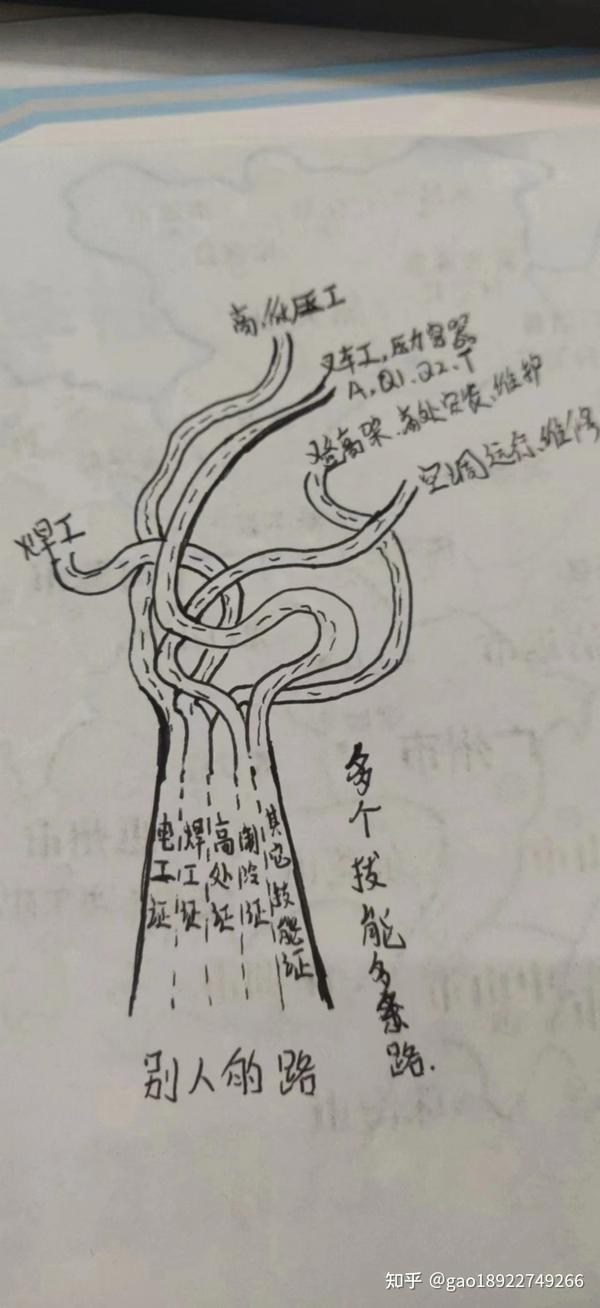 高、低压工
叉车工，压力容器
A、Q1、Q2、T
登高架、高处安装、维护
空调运行、维修
焊工
电工证
焊工证
高处证
制冷证
其它技能证
多个技能多条路.
别人的路
广州市
惠州市
知乎 @gao18922749266